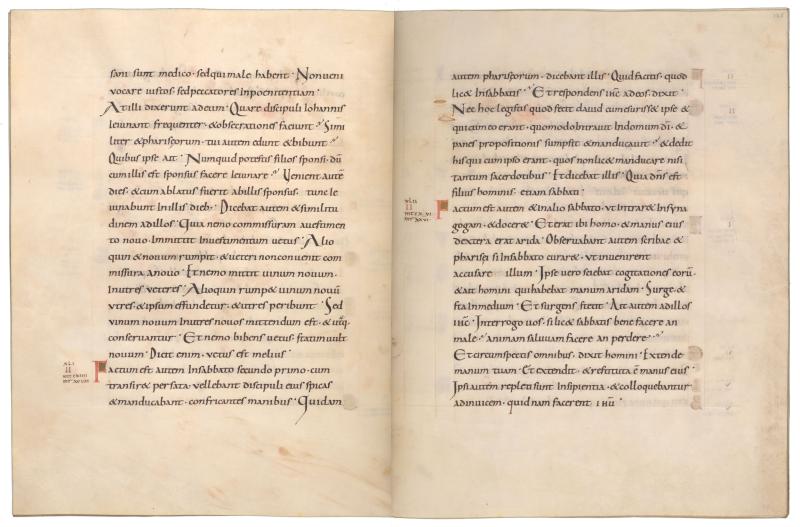 sani sunt medico · sed qui male habent · Non veni
vocare iustos · sed peccatores inpoenitentiam ·
Atilli dixerunt adeum · Quare discipuli Iohannis
ieiunant frequenter · & obsecrationes faciunt · Simi
liter & pharisęorum · tui autem edunt & bibunt ·
Quibus ipse ait · Numquid potestis filios sponsi · dū
cum illis est sponsus facere ieiunare · Venient autē
dies · & cum ablatus fuerit abillis sponsus · tunc ie
iunabunt Inillis dieb; · Dicebat autem & similitu
dinem adillos · Quia nemo commissuram avestimen
to novo · Immittit Investimentum vetus · Alio
quin & novum rumpit · & veteri nonconvenit com
missura anovo · Et nemo mittit vinum novum ·
Inutres veteres · Alioquin rump& vinum novū
vtres · & ipsum effundetur · & utres peribunt · Sed
vinum novum Inutres novos mittendum est · & utraq·
conservantur · Et nemo bibens vetus · statim vult
novum · Dicit enim · vetus est melius ·
XLI
II
Factum est autem Insabbato secundo primo · cum
transir& per sata · vellebant discipuli eius spicas
& manducabant · confricantes manibus · Quidam
autem pharisęorum · dicebant illis · Quid facitis · quod
lic& Insabbatis · Et respondens ihc adeos · dixit ·
Nec hoc legistis quod fecit david cum esuriss& ipse &
qui cum eo erant · quomodo Intravit Indomum dī · &
panes propositionis sumpsit & manducavit · & dedit
his qui cum ipso erant · quos nonlic& manducare nisi
tantum sacerdotibus · Et dicebat illis · Quia dns est
filius hominis · etiam sabbati ·
XLII
II
Factum est autem & inalio sabbato · vt Intrar& Insyna
gogam · & docer& · Et erat ibi homo · & manus eius
dextera erat arida · Observabant autem scribae &
pharisei si Insabbato curar& · vt invenirent
accusare illum · Ipse vero sciebat cogitationes eorū ·
& ait homini qui habebat manum aridam · Surge · &
sta Inmedium · Et surgens stetit · Ait autem adillos
ihc · Interrogo vos · si lic& sabbatis bene facere an
male · animam salvam facere an perdere ·
Et circumspectis omnibus · dixit homini · Extende
manum tuam · Et extendit · & restituta ē manus eius ·
Ipsi autem repleti sunt Insipientia · & colloquebantur
adinvicem · quid nam facerent ihū ·